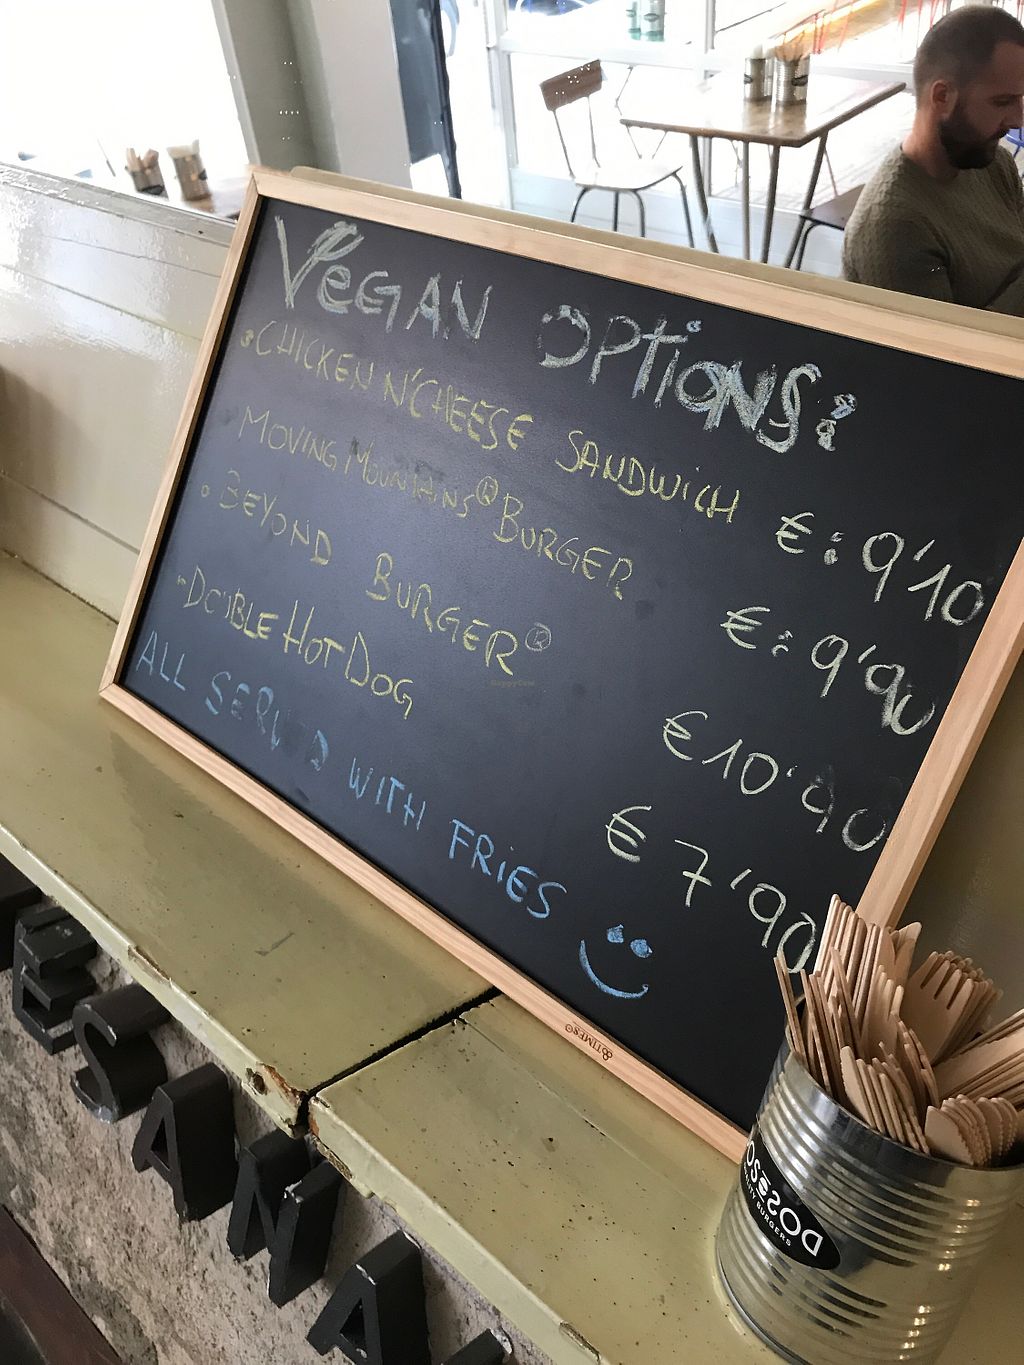 VEGAN OPTIONS:
• CHICKEN N'CHEESE SANDWICH €: 9'10
MOVING MOUNTAINS® BURGER €: 9'90
• BEYOND BURGER® €10'90
- DOUBLE HOT DOG €7'90
ALL SERV D WITH FRIES
&TIMES®
DOSDE
BURGERS
ESANA